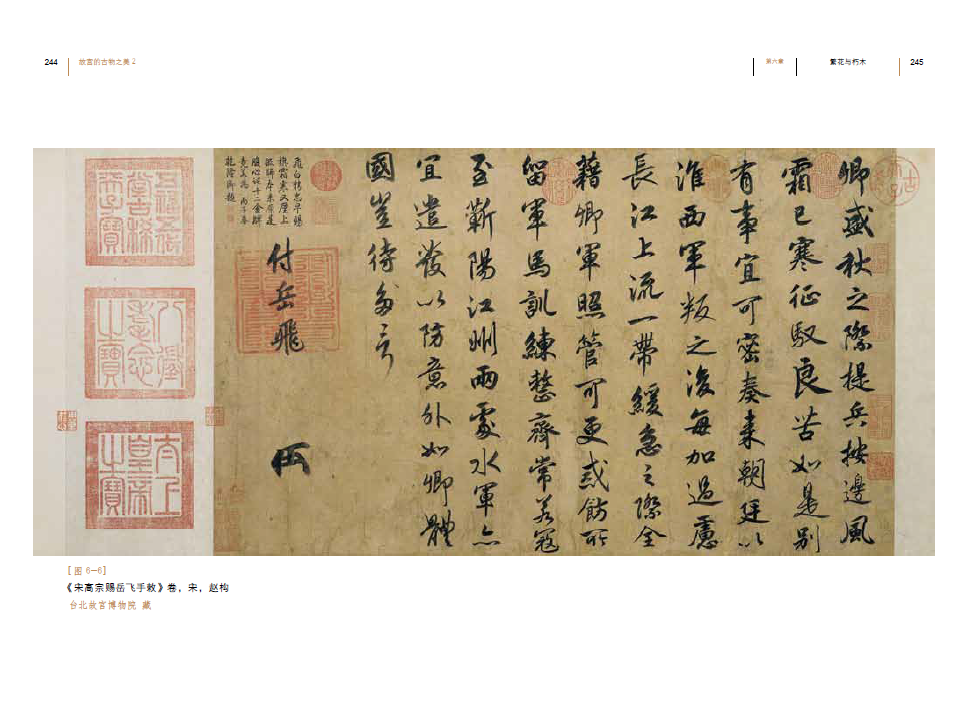 244
故宫的古物之美 2
第六章
繁花与朽木
245
卿盛秋之際提兵按邊風
霜已寒征馭良苦如是別
有事宜可密奏來朝廷以
淮西軍叛之後每加過慮
長江上流一帶緩急之際全
藉卿軍照管可更戒飭所
留軍馬訓練整齊常若寇
至蘄陽江州兩處水軍亦
宜遣發以防意外如卿體
國豈待多言
付岳飛
乾隆御題
八徵耄念之寶
太上皇帝之寶
[图 6—6]
《宋高宗赐岳飞手敕》卷，宋，赵构
台北故宫博物院 藏